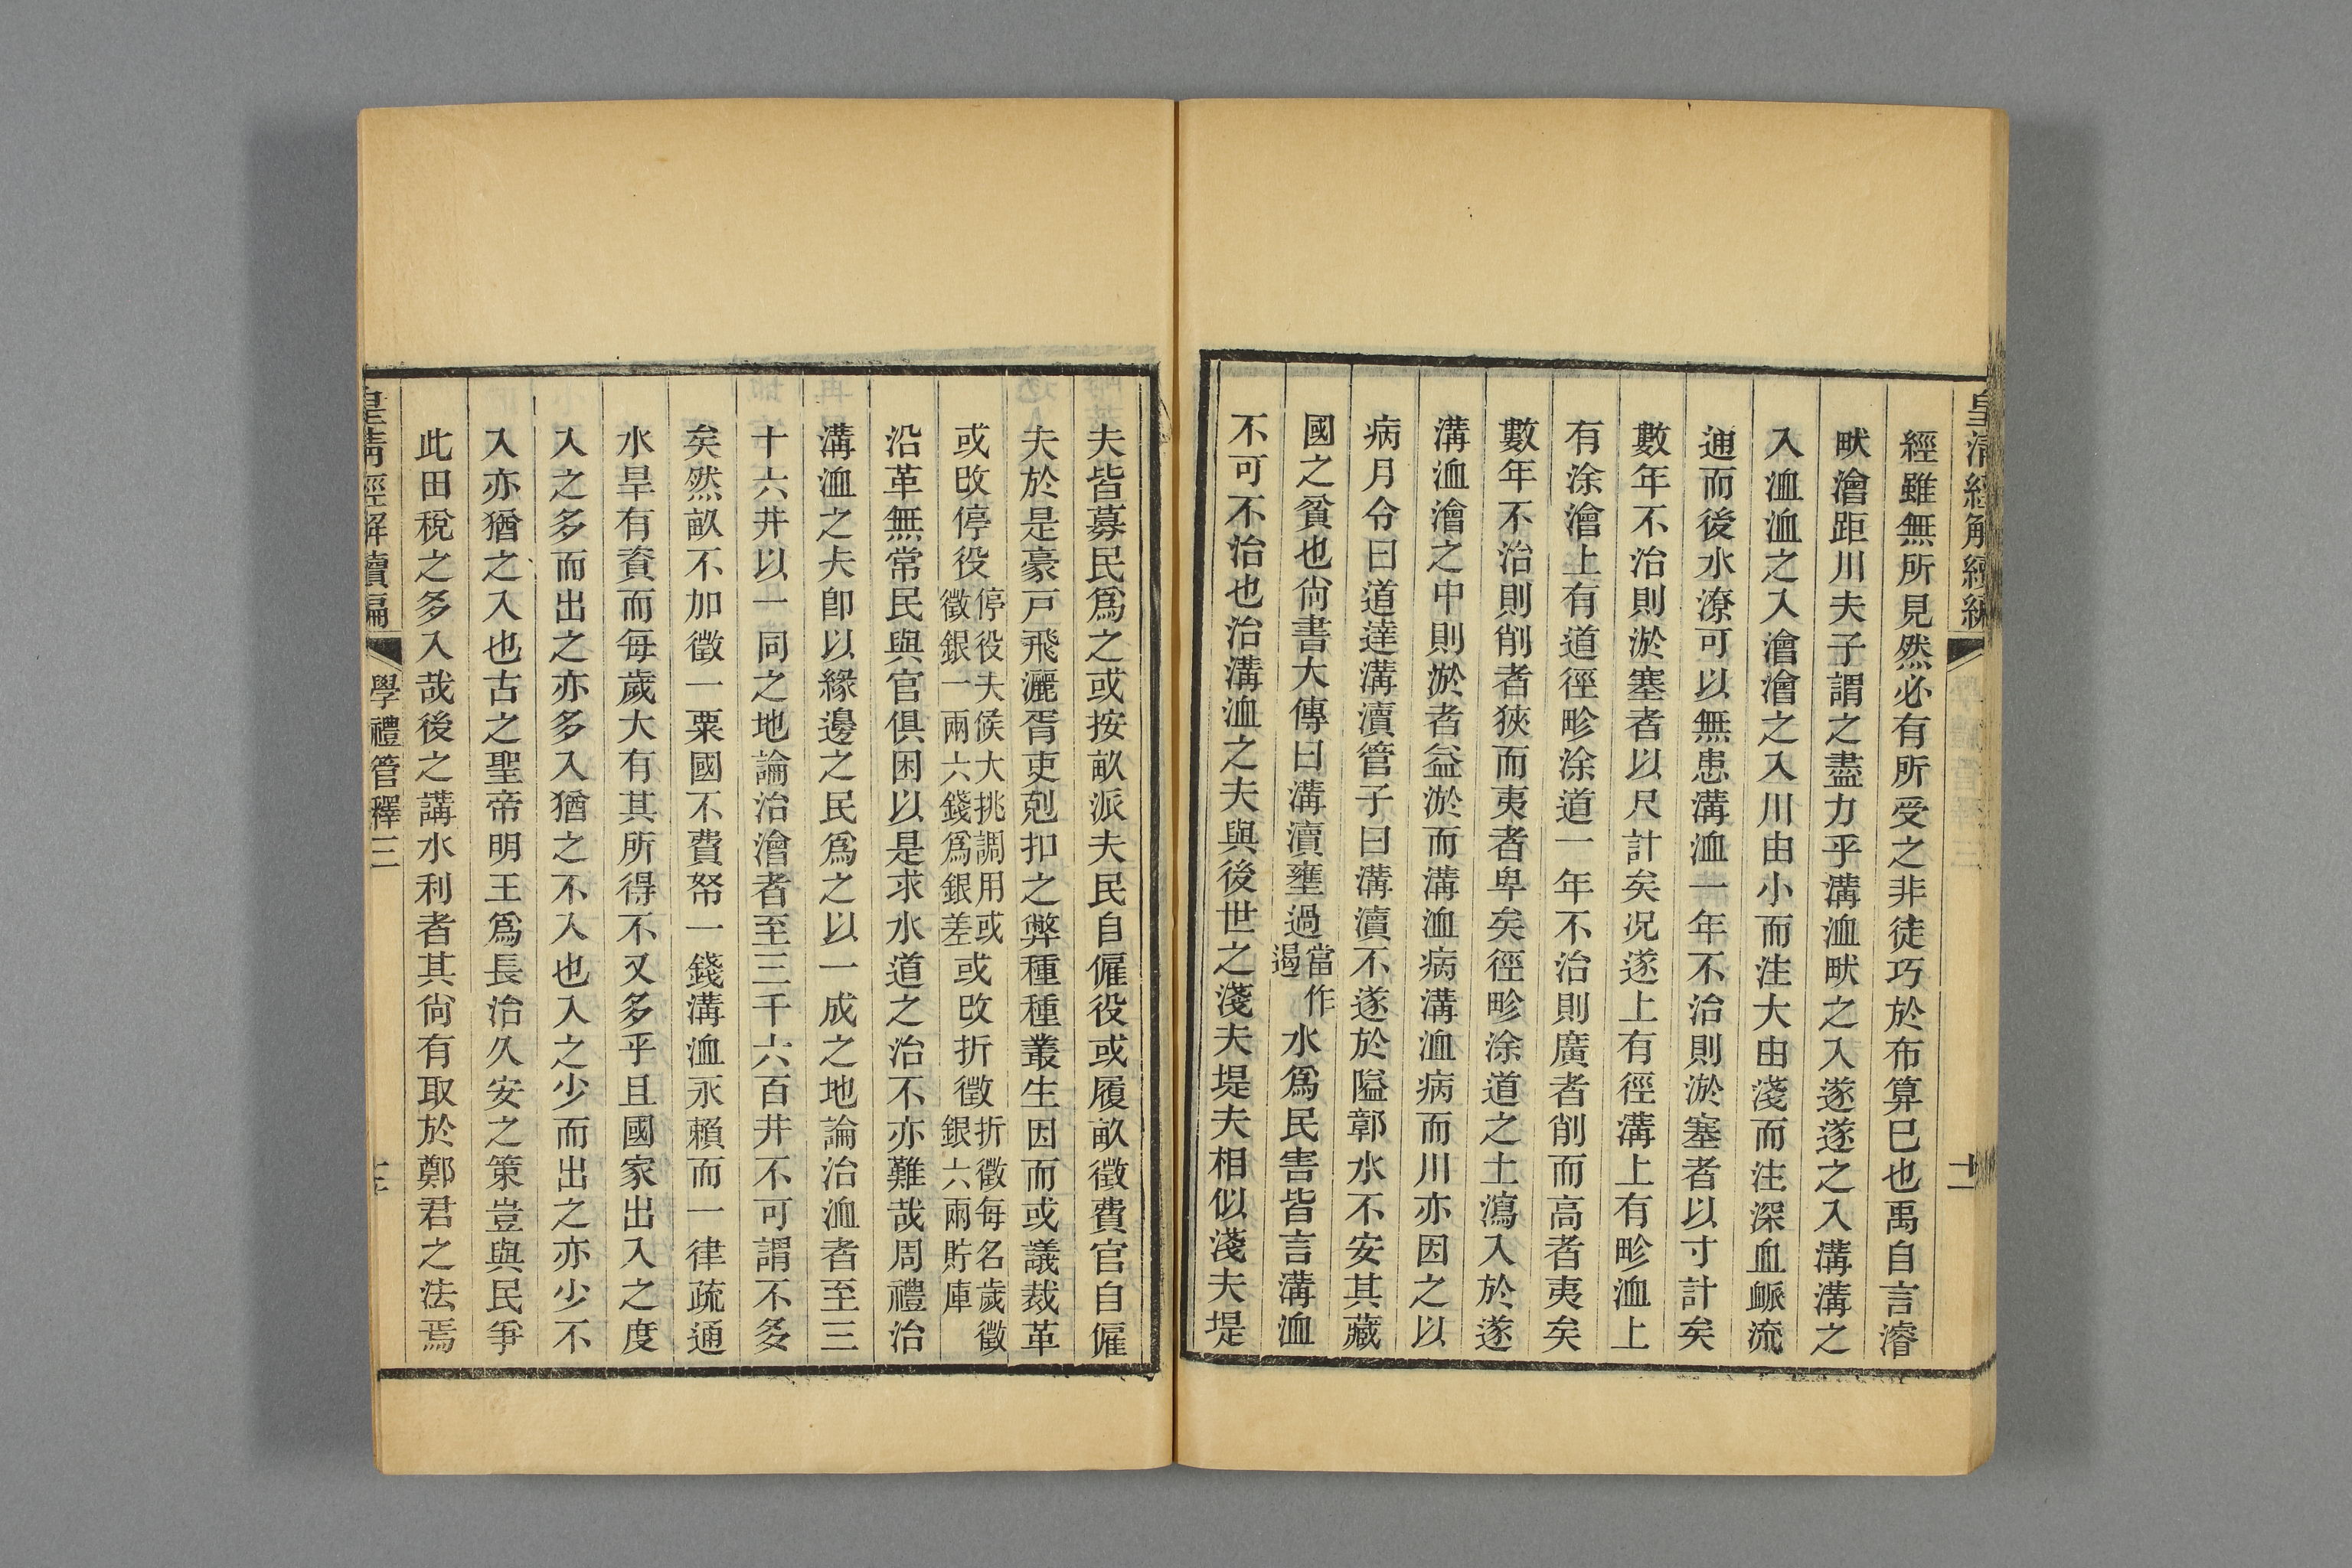 皇清經解續編
十二
經雖無所見然必有所受之非徒巧於布算巳也禹自言濬
畎澮距川夫子謂之盡力乎溝洫畎之入遂遂之入溝溝之
入洫洫之入澮澮之入川由小而注大由淺而注深血衇流
通而後水潦可以無患溝洫一年不治則淤塞者以寸計矣
數年不治則淤塞者以尺計矣况遂上有徑溝上有畛洫上
有涂澮上有道徑畛涂道一年不治則廣者削而高者夷矣
數年不治則削者狹而夷者卑矣徑畛涂道之土瀉入於遂
溝洫澮之中則淤者益淤而溝洫病溝洫病而川亦因之以
病月令曰道達溝瀆管子曰溝瀆不遂於隘鄣水不安其藏
國之貧也尙書大傳曰溝瀆壅過當作遏水爲民害皆言溝洫
不可不治也治溝洫之夫與後世之淺夫堤夫相似淺夫堤
夫皆募民爲之或按畝派夫民自僱役或履畝徵費官自僱
夫於是豪戸飛灑胥吏剋扣之弊種種叢生因而或議裁革
或改停役停役夫候大挑調用或徵銀一兩六錢爲銀差或改折徵折徵每名歲徵銀六兩貯庫
沿革無常民與官俱困以是求水道之治不亦難哉周禮治
溝洫之夫卽以緣邊之民爲之以一成之地論治洫者至三
十六井以一同之地論治澮者至三千六百井不可謂不多
矣然畝不加徵一粟國不費帑一錢溝洫永賴而一律疏通
水旱有資而每歲大有其所得不又多乎且國家出入之度
入之多而出之亦多入猶之不入也入之少而出之亦少不
入亦猶之入也古之聖帝明王爲長治久安之策豈與民爭
此田稅之多入哉後之講水利者其尙有取於鄭君之法焉
皇清經解續編
學禮管釋三